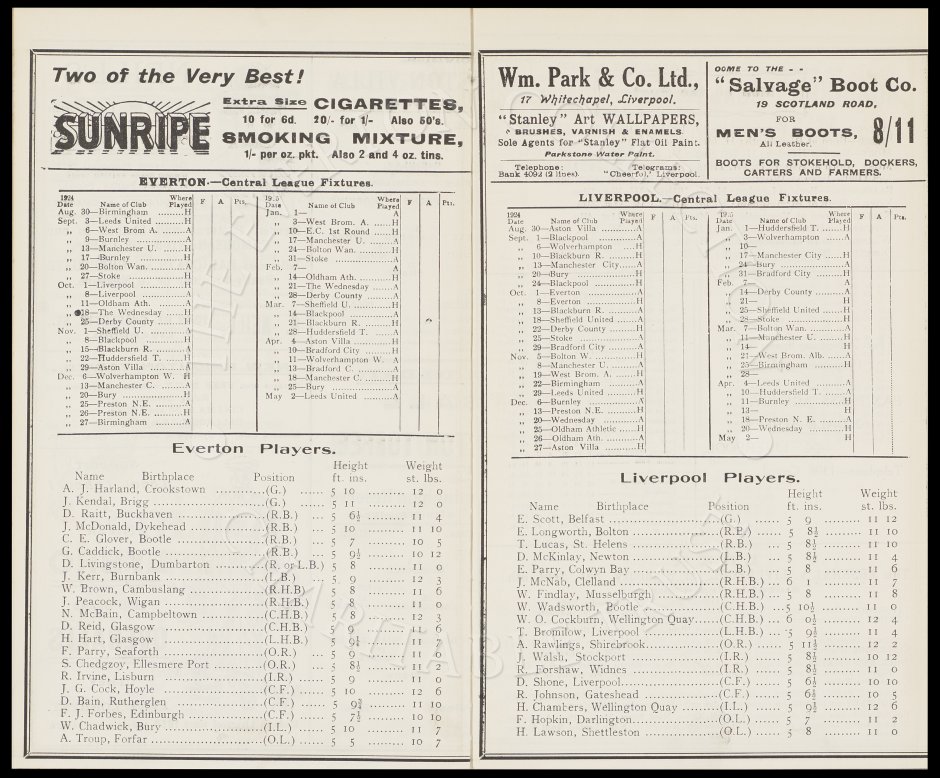 Two of the Very Best!
SUNRIPE
Extra Size CIGARETTES,
10 for 6d. 20/- for 1/- Also 50's.
SMOKING MIXTURE,
1/- per oz. pkt. Also 2 and 4 oz. tins.
EVERTON.—Central League Fixtures.
1924 Date Name of Club Where Played F A Pts.
Aug. 30—Birmingham ........H
Sept. 3—Leeds United ........H
„ 6—West Brom A. ........A
„ 9—Burnley ........A
„ 13—Manchester U. ........H
„ 17—Burnley ........H
„ 20—Bolton Wan. ........A
„ 27—Stoke ........H
Oct. 1—Liverpool ........H
„ 8—Liverpool ........A
„ 11—Oldham Ath. ........A
„ 18—The Wednesday ........H
„ 25—Derby County ........H
Nov. 1—Sheffield U. ........A
8—Blackpool ........H
„ 15—Blackburn R. ........A
„ 22—Huddersfield T. ........H
„ 29—Aston Villa ........A
Dec. 6—Wolverhampton W. H
„ 13—Manchester C. ........A
„ 20—Bury ........H
„ 25—Preston N.E. ........A
„ 26—Preston N.E. ........H
„ 27—Birmingham ........A
Date Name of Club Where Played F A Pts.
Jan. 1— A
„ 3—West Brom. A. ........H
„ 10—E.C. 1st Round ........H
„ 17—Manchester U. ........A
„ 24—Bolton Wan. ........H
„ 31—Stoke ........A
Feb. 7— A
„ 14—Oldham Ath. ........H
„ 21—The Wednesday ........A
„ 28—Derby County ........A
Mar. 7—Sheffield U. ........H
„ 14—Blackpool ........A
„ 21—Blackburn R. ........H
„ 28—Huddersfield T. ........A
Apr. 4—Aston Villa ........H
„ 10—Bradford City ........H
„ 11—Wolverhampton W. A
„ 13—Bradford C. ........A
„ 18—Manchester C. ........H
„ 25—Bury ........A
May 2—Leeds United ........A
Everton Players.
Name Birthplace Position Height ft. ins. Weight st. lbs.
A. J. Harland, Crookstown ........(G.) ...... 5 10 ........ 12 0
J. Kendal, Brigg ........(G.) ...... 5 11 ........ 12 0
D. Raitt, Buckhaven ........(R.B.) ... 5 6½ ........ 11 4
J. McDonald, Dykehead ........(R.B.) ... 5 10 ........ 11 10
C. E. Glover, Bootle ........(R.B.) ... 5 7 ........ 10 5
G. Caddick, Bootle ........(R.B.) ... 5 9½ ........ 10 12
D. Livingstone, Dumbarton ........(R. or L.B.) 5 8 ........ 11 0
J. Kerr, Burnbank ........(L.B.) ... 5 9 ........ 12 3
W. Brown, Cambuslang ........(R.H.B) 5 8 ........ 11 6
J. Peacock, Wigan ........(R.H.B.) 5 8 ........ 11 0
N. McBain, Campbeltown ........(C.H.B.) 5 8 ........ 12 3
D. Reid, Glasgow ........(C.H.B.) 5 9 ........ 11 6
H. Hart, Glasgow ........(L.H.B.) 5 9¼ ........ 11 7
F. Parry, Seaforth ........(O.R.) ... 5 9 ........ 11 0
S. Chedgzoy, Ellesmere Port ........(O.R.) ... 5 8½ ........ 11 2
R. Irvine, Lisburn ........(I.R.) ... 5 9 ........ 11 0
J. G. Cock, Hoyle ........(C.F.) ... 5 10 ........ 12 6
D. Bain, Rutherglen ........(C.F.) ... 5 9¾ ........ 11 10
F. J. Forbes, Edinburgh ........(C.F.) ... 5 7½ ........ 10 10
W. Chadwick, Bury ........(I.L.) ... 5 10 ........ 11 7
A. Troup, Forfar ........(O.L.) ... 5 5 ........ 10 7
Wm. Park & Co. Ltd.,
17 Whitechapel, Liverpool.
"Stanley" Art WALLPAPERS,
BRUSHES, VARNISH & ENAMELS.
Sole Agents for "Stanley" Flat Oil Paint.
Parkstone Water Paint.
Telephone: Telegrams:
Bank 4092 (2 lines). "Cheerful," Liverpool.
COME TO THE - -
"Salvage" Boot Co.
19 SCOTLAND ROAD,
FOR
MEN'S BOOTS, 8/11
All Leather.
BOOTS FOR STOKEHOLD, DOCKERS,
CARTERS AND FARMERS.
LIVERPOOL.—Central League Fixtures.
1924 Date Name of Club Where Played F A Pts.
Aug. 30—Aston Villa ........A
Sept. 1—Blackpool ........A
„ 6—Wolverhampton ....H
„ 10—Blackburn R. ........H
„ 13—Manchester City ......A
„ 20—Bury ........H
„ 24—Blackpool ........H
Oct. 1—Everton ........A
„ 8—Everton ........H
„ 13—Blackburn R. ........A
„ 18—Sheffield United ......A
„ 22—Derby County ........H
„ 25—Stoke ........A
„ 29—Bradford City ........A
Nov. 5—Bolton W. ........H
„ 8—Manchester U. ........A
„ 19—West Brom. A. ........H
„ 22—Birmingham ........A
„ 29—Leeds United ........H
Dec. 6—Burnley ........A
„ 13—Preston N.E. ........H
„ 20—Wednesday ........A
„ 25—Oldham Athletic ......H
„ 26—Oldham Ath. ........A
„ 27—Aston Villa ........H
Date Name of Club Where Played F A Pts.
Jan. 1—Huddersfield T. ......H
„ 3—Wolverhampton ......A
„ 10—
„ 17—Manchester City ......H
„ 24—Bury ........A
„ 31—Bradford City ........H
Feb. 7—
„ 14—Derby County ........A
„ 21— H
„ 25—Sheffield United ......H
„ 28—Stoke ........H
Mar. 7—Bolton Wan. ........A
„ 11—Manchester U. ........H
„ 14— H
„ 21—West Brom. Alb. ......A
„ 25—Birmingham ........H
„ 28—
Apr. 4—Leeds United ........A
„ 10—Huddersfield T. ......A
„ 11—Burnley ........H
„ 13— H
„ 18—Preston N. E. ........A
„ 20—Wednesday ........H
May 2— H
Liverpool Players.
Name Birthplace Position Height ft. ins. Weight st. lbs.
E. Scott, Belfast ........(G.) ...... 5 9 ........ 11 12
E. Longworth, Bolton ........(R.B.) ... 5 8½ ........ 11 10
T. Lucas, St. Helens ........(R.B.) ... 5 8½ ........ 11 10
D. McKinlay, Newton ........(L.B.) ... 5 8½ ........ 11 4
E. Parry, Colwyn Bay ........(L.B.) ... 5 8 ........ 11 6
J. McNab, Clelland ........(R.H.B.) ... 6 1 ........ 11 7
W. Findlay, Musselburgh ........(R.H.B.) ... 5 8 ........ 11 8
W. Wadsworth, Bootle ........(C.H.B.) ... 5 10½ ........ 11 0
W. O. Cockburn, Wellington Quay......(C.H.B.) ... 6 0½ ........ 12 4
T. Bromilow, Liverpool ........(L.H.B.) ... 5 9½ ........ 11 4
A. Rawlings, Shirebrook........(O.R.) ... 5 11½ ........ 12 2
J. Walsh, Stockport ........(I.R.) ... 5 8½ ........ 10 12
R. Forshaw, Widnes ........(I.R.) ... 5 8½ ........ 11 0
D. Shone, Liverpool........(C.F.) ... 5 6½ ........ 10 10
R. Johnson, Gateshead ........(C.F.) ... 5 6½ ........ 10 5
H. Chambers, Wellington Quay ........(I.L.) ... 5 9½ ........ 12 6
F. Hopkin, Darlington........(O.L.) ... 5 7 ........ 11 2
H. Lawson, Shettleston ........(O.L.) ... 5 8 ........ 11 0